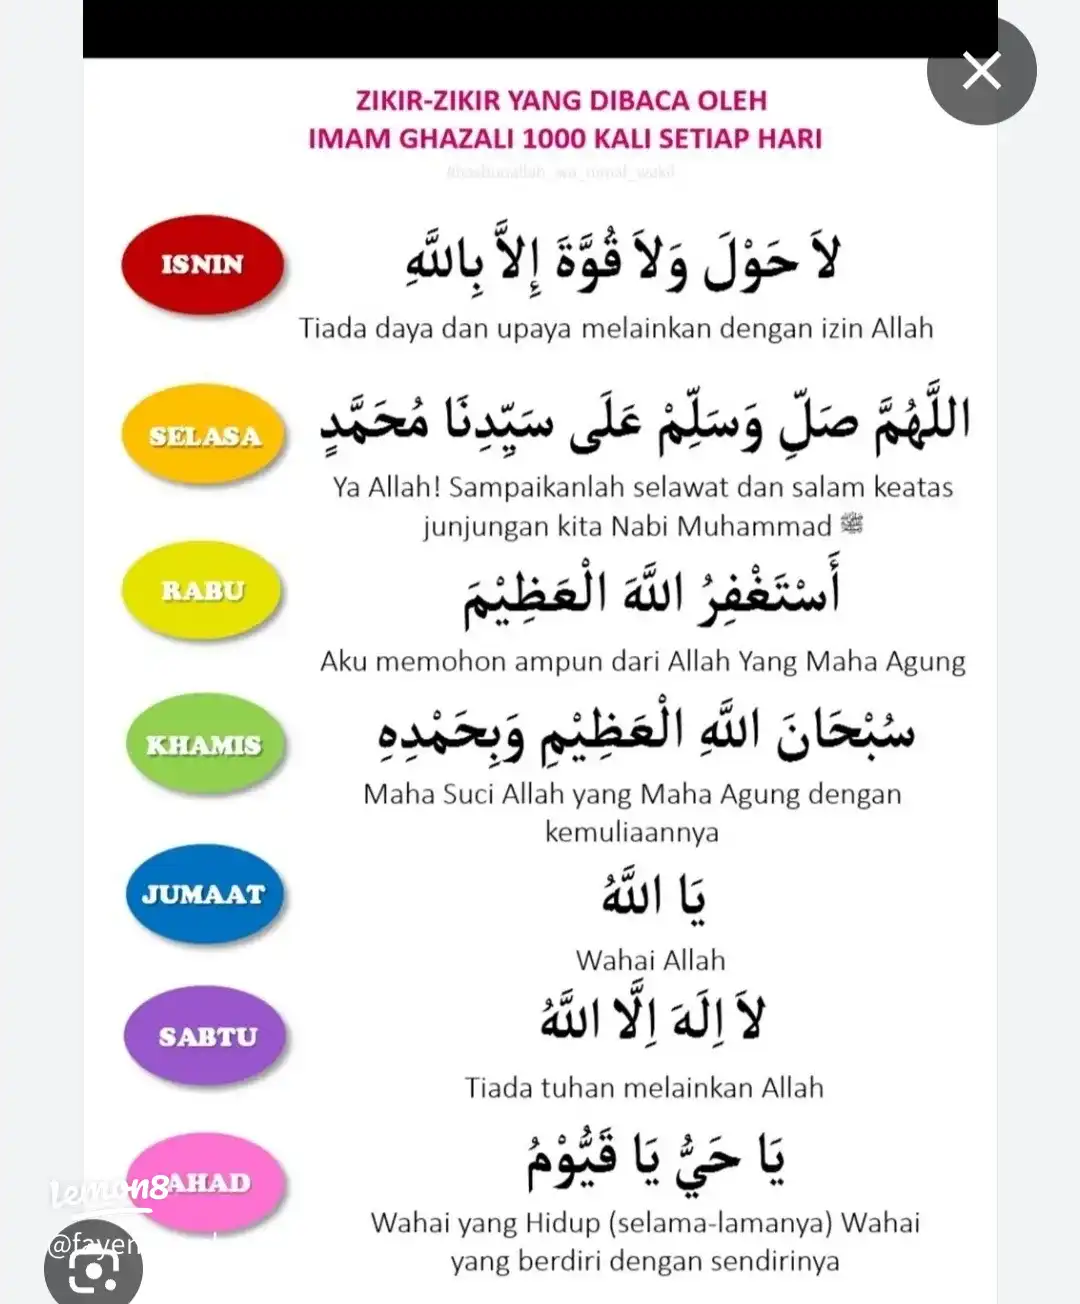 ZIKIR-ZIKIR YANG DIBACA OLEH
IMAM GHAZALI 1000 KALI SETIAP HARI
ISNIN
لاَ حَوْلَ وَلاَ قُوَّةَ إِلاَّ بِاللَّهِ
Tiada daya dan upaya melainkan dengan izin Allah
SELASA
اللَّهُمَّ صَلِّ وَسَلِّمْ عَلَى سَيِّدِنَا مُحَمَّدٍ
Ya Allah! Sampaikanlah selawat dan salam keatas
junjungan kita Nabi Muhammad ﷺ
RABU
أَسْتَغْفِرُ اللَّهَ الْعَظِيْمَ
Aku memohon ampun dari Allah Yang Maha Agung
KHAMIS
سُبْحَانَ اللَّهِ الْعَظِيْمِ وَبِحَمْدِهِ
Maha Suci Allah yang Maha Agung dengan
kemuliaannya
JUMAAT
يَا اللَّهُ
Wahai Allah
SABTU
لاَ اِلَهَ اِلَّا اللَّهُ
Tiada tuhan melainkan Allah
AHAD
يَا حَيُّ يَا قَيُّوْمُ
Wahai yang Hidup (selama-lamanya) Wahai
yang berdiri dengan sendirinya
Lemon8